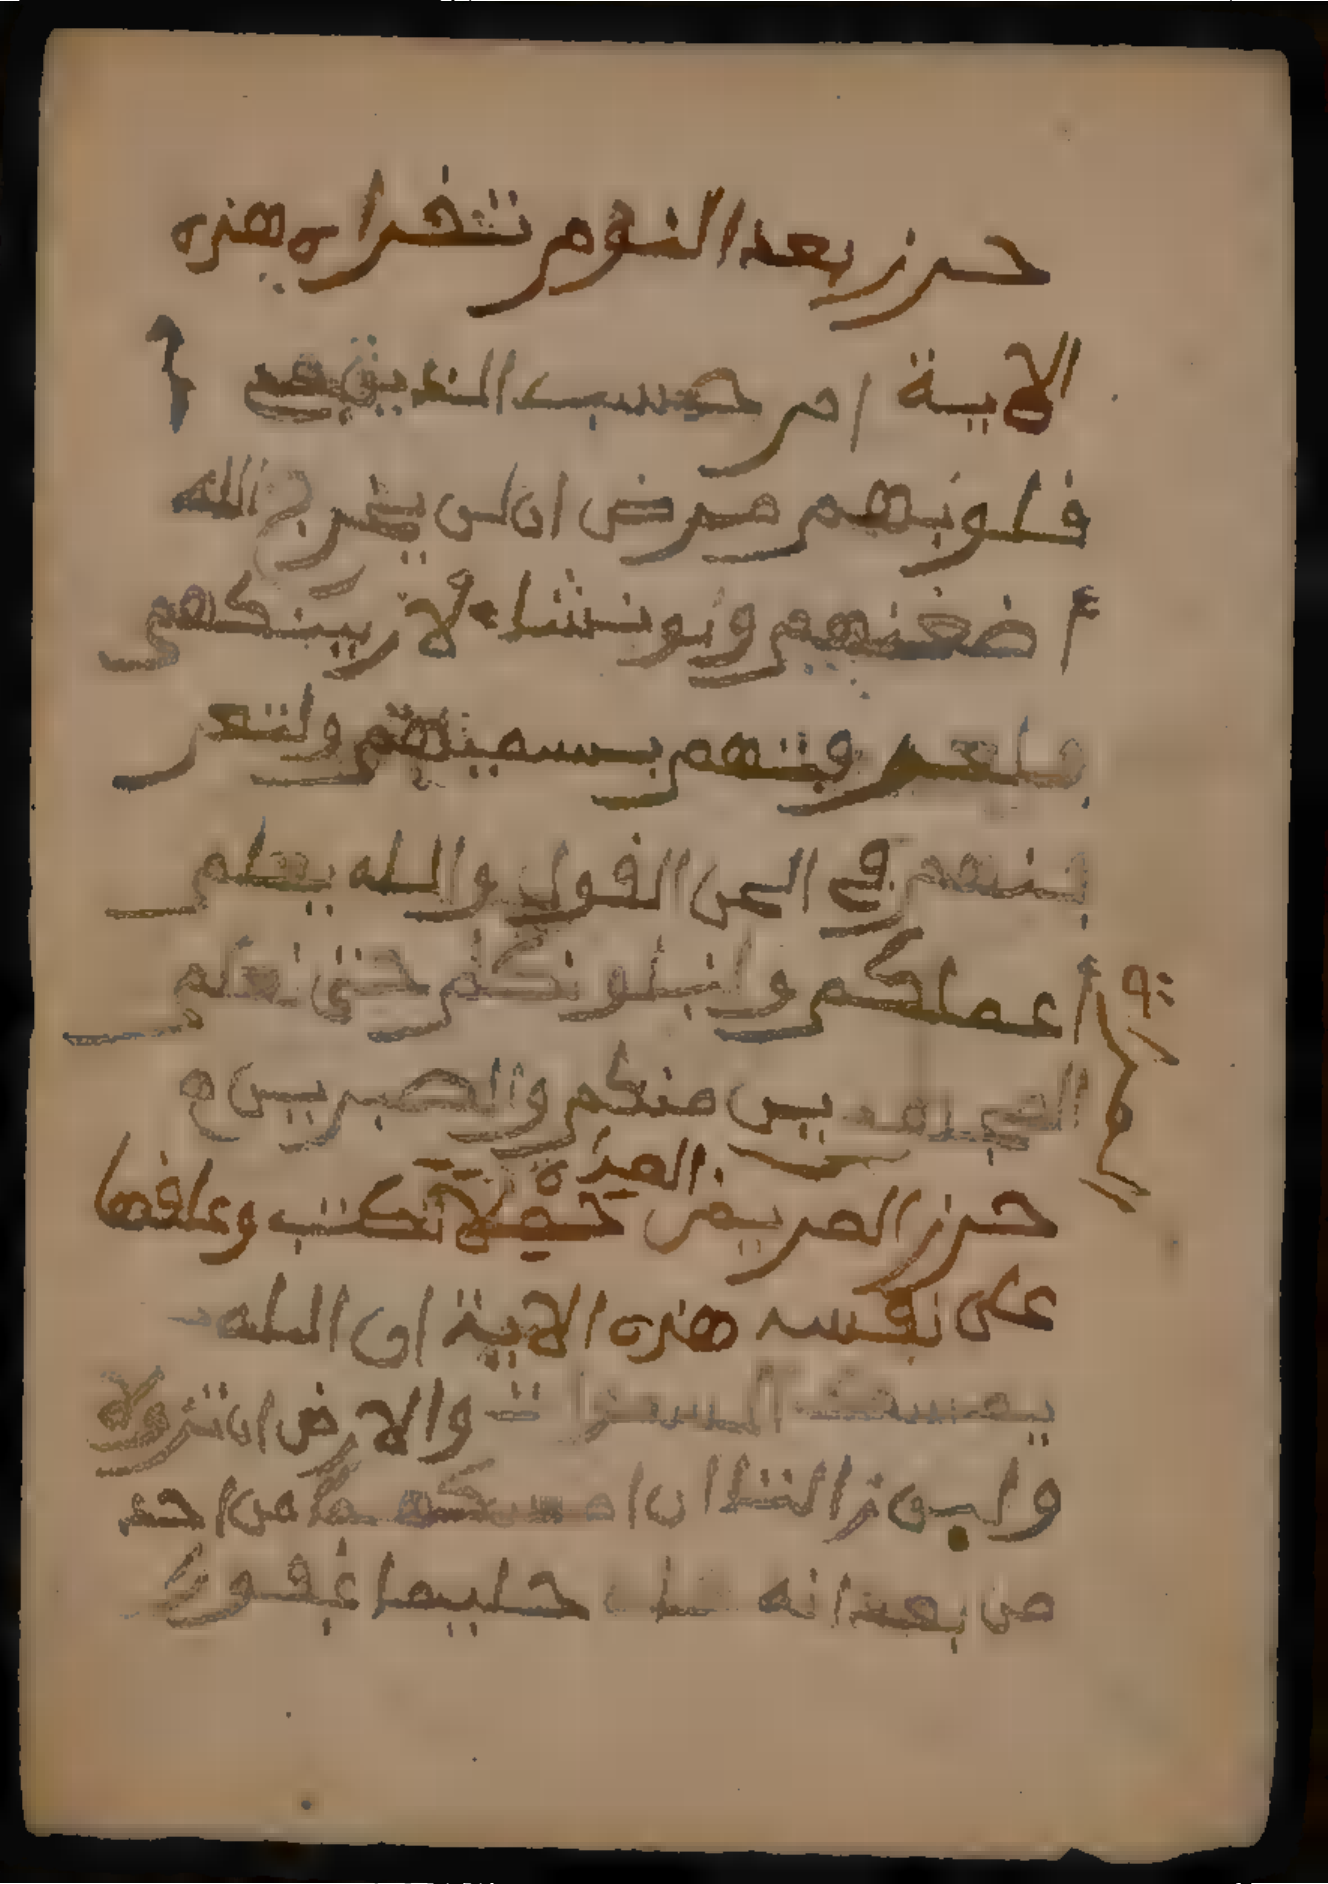 حرز بعد النوم تقراه هذه
الاية ام حسب الذين في
فلوبهم مرض ان لن يخرج الله
اضغنهم ولو نشاء لا ريينكهم
فلعرفتهم بسميهم ولتعر
بنهم في الحن الفول والله يعلم
اعملكم ولنبلونكم حتى نعلم
المجهدين منكم والصبرين و
حرز المريض تكتب وعلفها
المرءة
على نفسه هذه الاية ان الله
يمسك السموات والارض ان تزولا
ولين زالتا ان امسكهما من احد
من بعده انه كان حليما غفورا